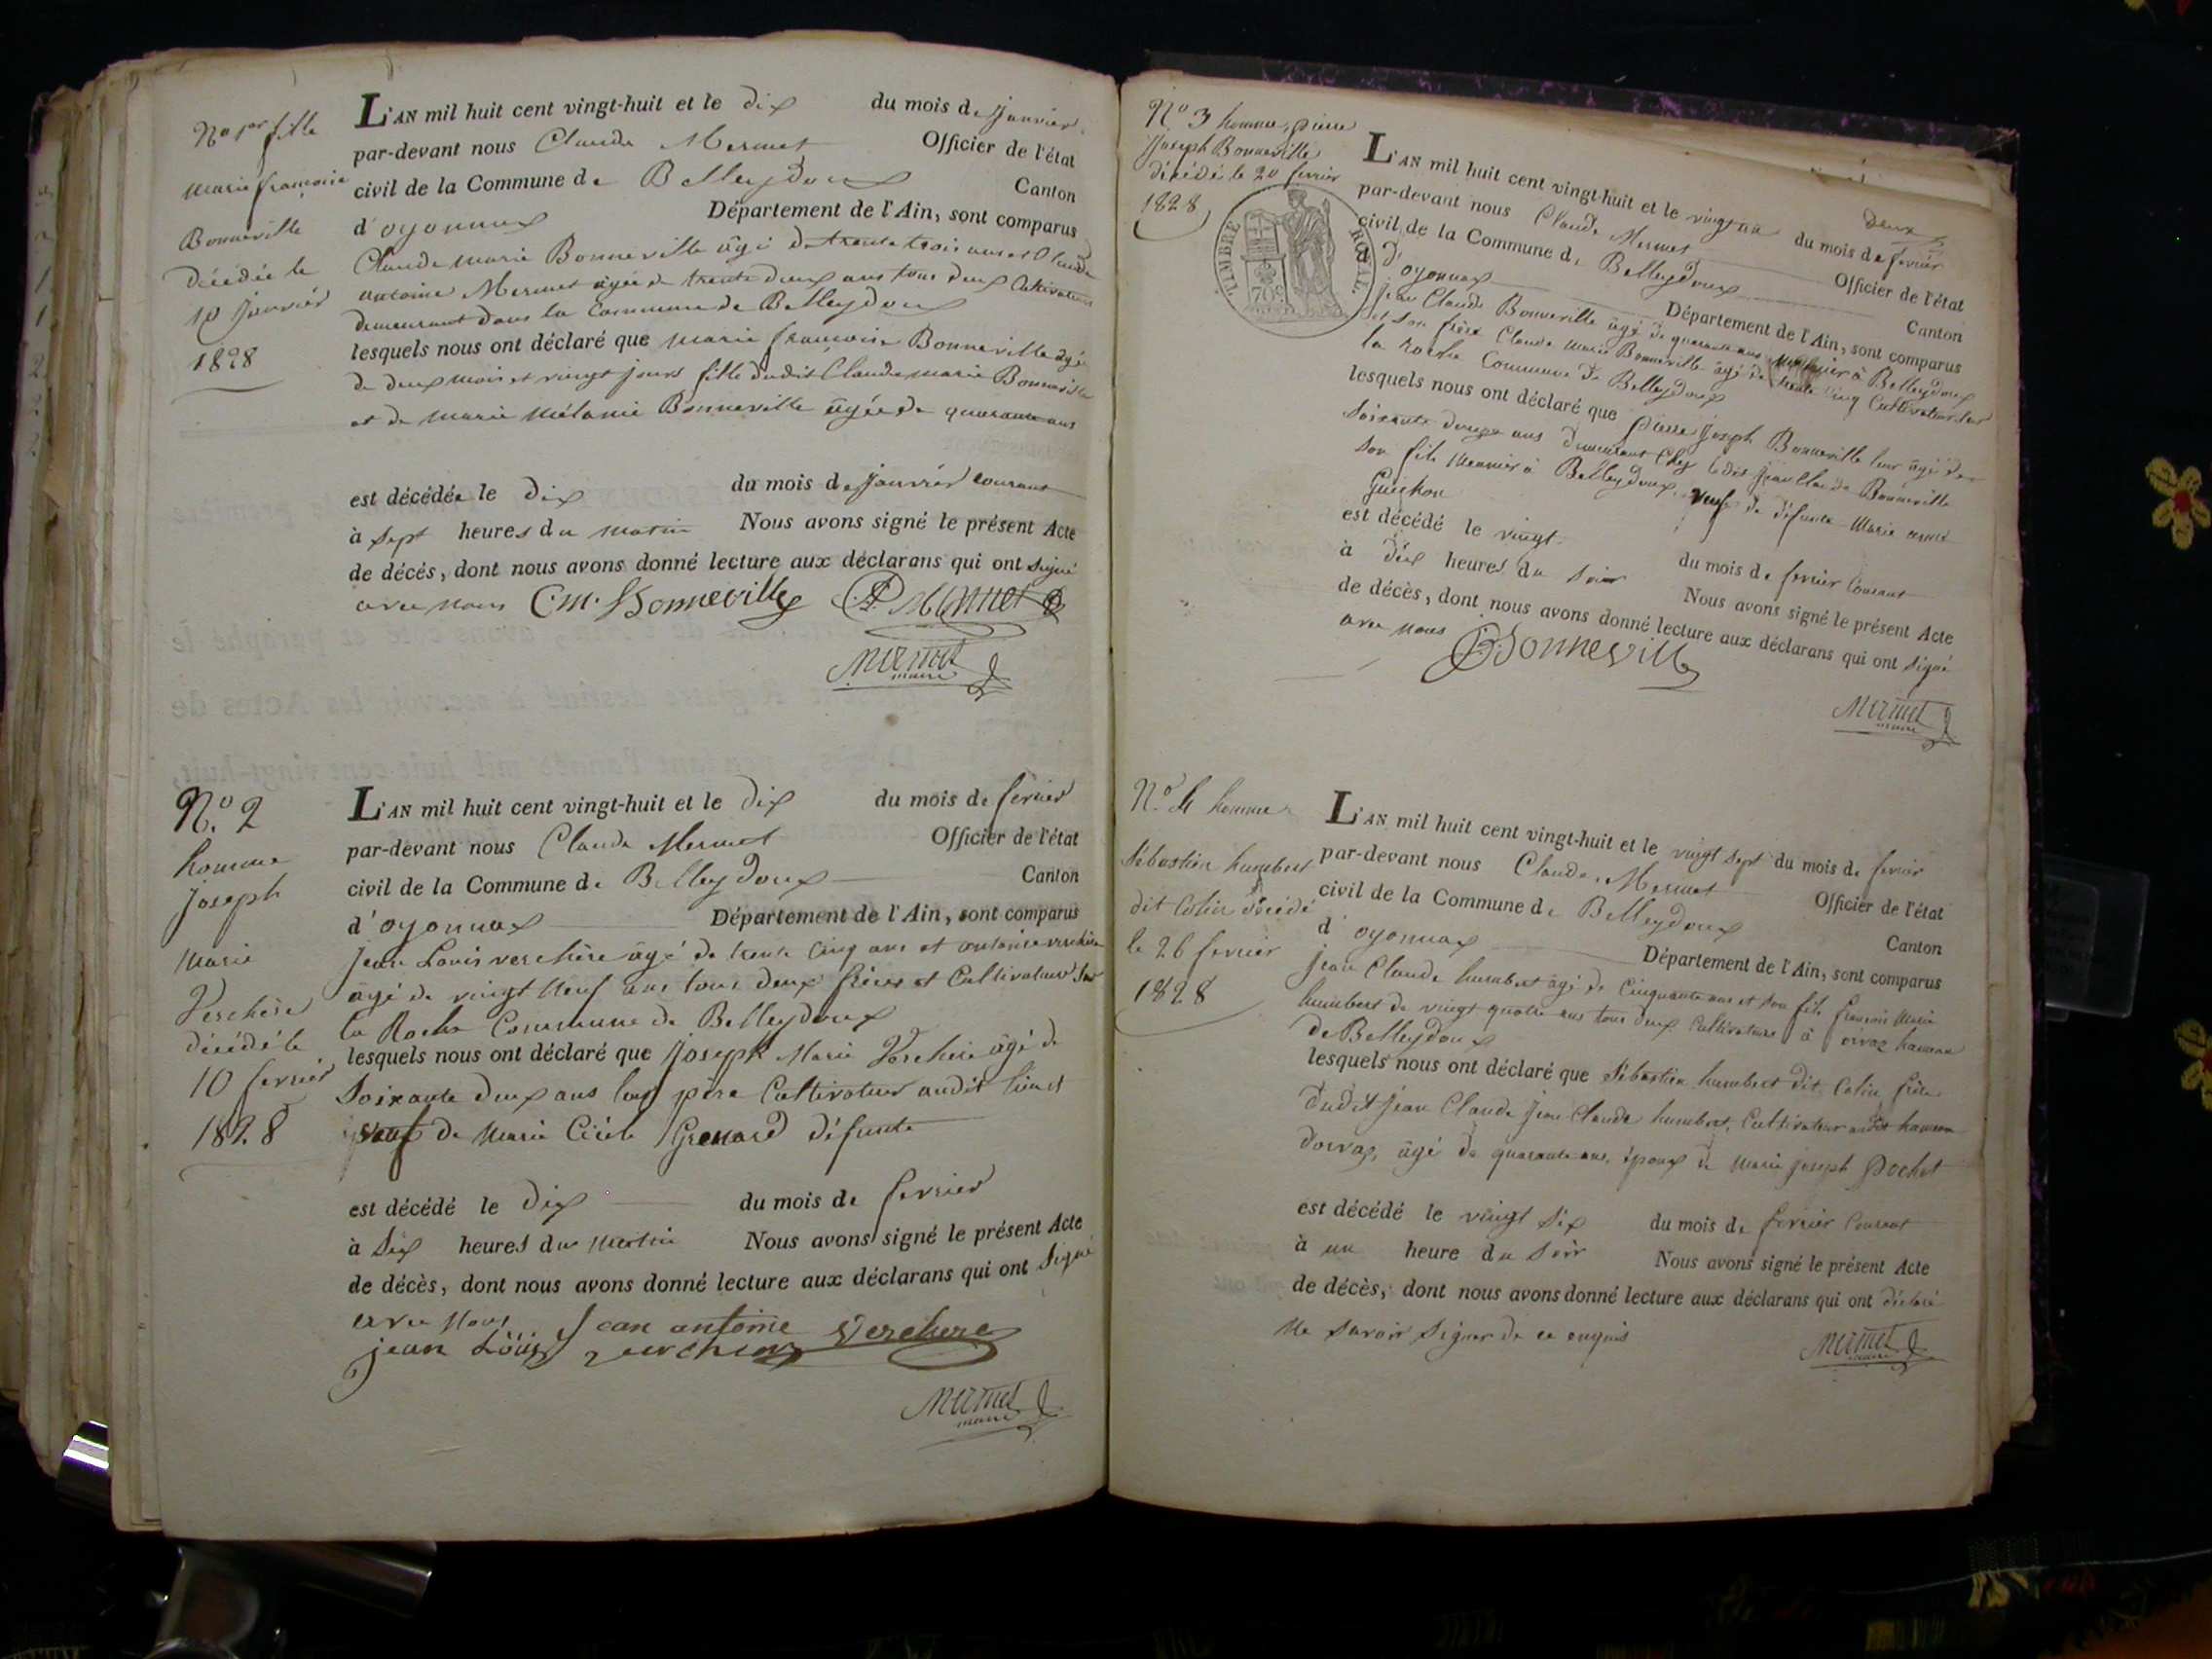 No 1er fille
marie françoise
Bonneville
décédée le
10 janvier
1828
L'AN mil huit cent vingt-huit et le dix du mois de janvier
par-devant nous Claude Mermet Officier de l'état
civil de la Commune de Belleydoux Canton
d'oyonnax Département de l'Ain, sont comparus
Claude marie Bonneville âgé de trente trois ans et Claude
antoine Mermet âgé de trente deux ans tous deux Cultivateurs
demeurant dans la Commune de Belleydoux
lesquels nous ont déclaré que marie françoise Bonneville âgée
de deux mois et vingt jours fille dudit Claude marie Bonneville
et de marie Mélanie Bonneville âgée de quarante ans
est décédée le dix du mois de janvier courant
à sept heures du matin Nous avons signé le présent Acte
de décés, dont nous avons donné lecture aux déclarans qui ont signé
avec nous C.m. Bonneville Mermet
Mermet
maire
No. 2
homme
joseph
Marie
Verchère
décédé le
10 fevrier
1828
L'AN mil huit cent vingt-huit et le dix du mois de fevrier
par-devant nous Claude Mermet Officier de l'état
civil de la Commune de Belleydoux Canton
d'oyonnax Département de l'Ain, sont comparus
jean Louis verchère âgé de trente cinq ans et antoine verchère
âgé de vingt neuf ans tous deux frères et Cultivateurs sur
la Roche Commune de Belleydoux
lesquels nous ont déclaré que joseph Marie Verchère âgé de
soixante deux ans leur père Cultivateur audit lieu et
veuf de Marie Cécile Grenard défunte
est décédé le dix du mois de fevrier
à six heures du matin Nous avons signé le présent Acte
de décès, dont nous avons donné lecture aux déclarans qui ont signé
avec nous Jean antoine Verchere
jean Louis verchere
Mermet
maire
No 3 homme, pierre
joseph Bonneville
décédé le 20 fevrier
1828
TIMBRE ROYAL.
70c
L'AN mil huit cent vingt-huit et le vingt deux du mois de fevrier
par-devant nous Claude Mermet Officier de l'état
civil de la Commune de Belleydoux Canton
d'oyonnax Département de l'Ain, sont comparus
jean Claude Bonneville âgé de quarante ans Meunier à Belleydoux
et son frère Claude Marie Bonneville âgé de trente cinq Cultivateur sur
la roche Commune de Belleydoux
lesquels nous ont déclaré que pierre joseph Bonneville leur âgé de
soixante douze ans demeurant chez ledit jean Claude Bonneville
son fils Meunier à Belleydoux, veuf de défunte Marie anne
est décédé le vingt du mois de fevrier Courant
à dix heures du soir Nous avons signé le présent Acte
de décès, dont nous avons donné lecture aux déclarans qui ont signé
avec nous Bonneville
Mermet
maire
No. 4 homme
Sébastien humbert
dit Colin décédé
le 26 fevrier
1828
L'AN mil huit cent vingt-huit et le vingt sept du mois de fevrier
par-devant nous Claude Mermet Officier de l'état
civil de la Commune de Belleydoux Canton
d'oyonnax Département de l'Ain, sont comparus
jean Claude humbert âgé de Cinquante ans et son fils françois Marie
humbert de vingt quatre ans tous deux Cultivateurs à orvaz hameau
de Belleydoux
lesquels nous ont déclaré que Sébastien humbert dit Colin frère
dudit jean Claude jean Claude humbert, Cultivateur audit hameau
dorvaz, âgé de quarante ans, époux de Marie joseph Pochet
est décédé le vingt six du mois de fevrier Courant
à un heure du soir Nous avons signé le présent Acte
de décès, dont nous avons donné lecture aux déclarans qui ont déclaré
Ne savoir signer de ce enquis
Mermet
maire